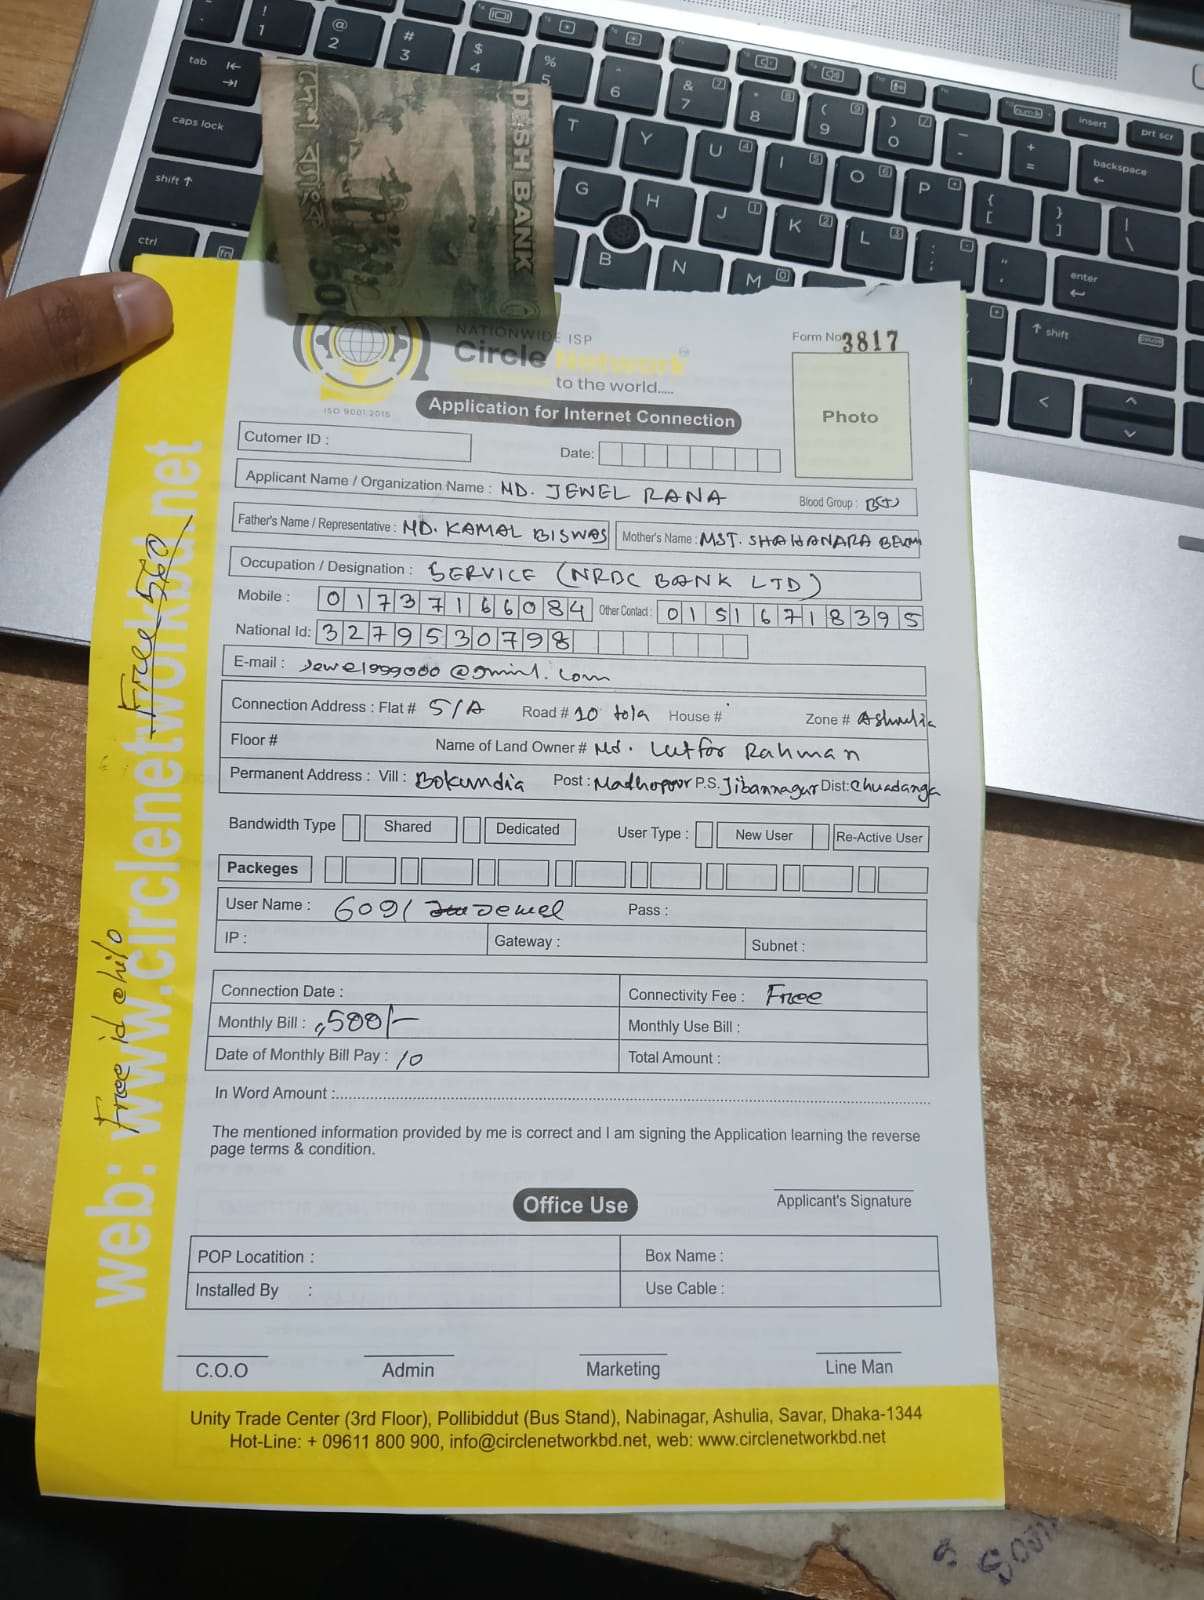 ! 1 @ 2 # 3 $ 4 % 5 ^ 6 & 7 * 8 ( 9 ) 0 _ - + =
insert prt scr
backspace
tab
caps lock
shift
ctrl fn
T Y U I O P { [ } ] | \
G H J K L : ; " '
B N M
enter
shift
DESH BANK
50
NATIONWIDE ISP
Circle Network™
to the world.....
ISO 9001:2015
Form No 3817
Photo
Application for Internet Connection
Cutomer ID :
Date:
Applicant Name / Organization Name : MD. JEWEL RANA Blood Group :
Father's Name / Representative : MD. KAMAL BISWAS Mother's Name : MST. SHAHANARA
Occupation / Designation : SERVICE (NRBC BANK LTD)
Mobile : 01737166084 Other Contact : 01516718395
National Id: 3279530798
E-mail : Jewel999000@gmail.com
Connection Address : Flat # 5/A Road # 10 tola House # Zone # Ashulia
Floor # Name of Land Owner # Md. Lutfor Rahman
Permanent Address : Vill : Bokundia Post : Madhopoor P.S. Jibannagur Dist: Chuadanga
Bandwidth Type Shared Dedicated User Type : New User Re-Active User
Packeges
User Name : 6091 Jewel Pass :
IP : Gateway : Subnet :
Connection Date : Connectivity Fee : Free
Monthly Bill : 500/- Monthly Use Bill :
Date of Monthly Bill Pay : 10 Total Amount :
In Word Amount :
The mentioned information provided by me is correct and I am signing the Application learning the reverse
page terms & condition.
Applicant's Signature
Office Use
POP Locatition : Box Name :
Installed By : Use Cable :
C.O.O Admin Marketing Line Man
Unity Trade Center (3rd Floor), Pollibiddut (Bus Stand), Nabinagar, Ashulia, Savar, Dhaka-1344
Hot-Line: + 09611 800 900, info@circlenetworkbd.net, web: www.circlenetworkbd.net
web: www.circlenetworkbd.net
Free 500
Free id chilo